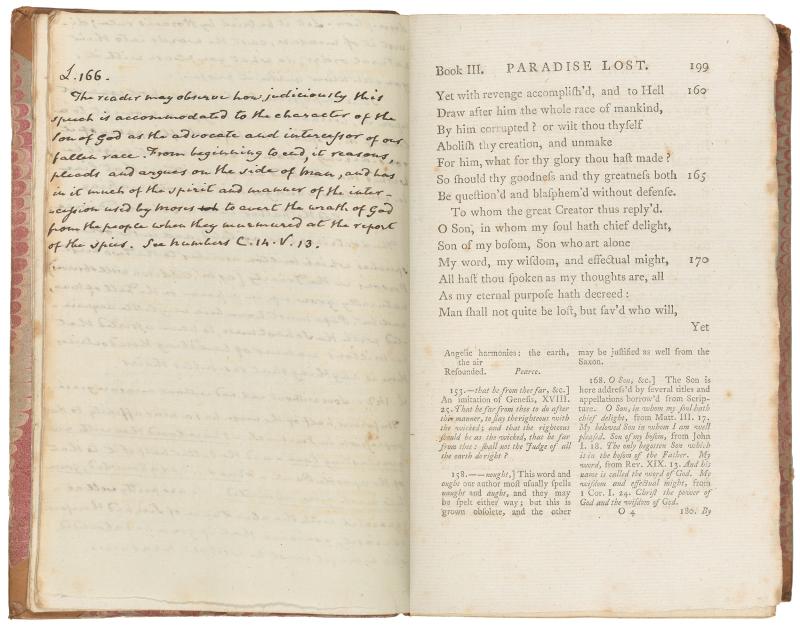 L.166.
The reader may observe how judiciously this
speech is accommodated to the character of the
Son of God as the advocate and intercessor of our
fallen race. From beginning to end, it reasons,
pleads and argues on the side of Man, and has
in it much of the spirit and manner of the inter-
-cession used by Moses to avert the wrath of God
from the people when they murmured at the report
of the spies. See Numbers C.14.V.13.
Book III. PARADISE LOST. 199
Yet with revenge accompliſh'd, and to Hell 160
Draw after him the whole race of mankind,
By him corrupted? or wilt thou thyſelf
Aboliſh thy creation, and unmake
For him, what for thy glory thou haſt made?
So ſhould thy goodneſs and thy greatneſs both 165
Be queſtion'd and blaſphem'd without defenſe.
To whom the great Creator thus reply'd.
O Son, in whom my ſoul hath chief delight,
Son of my boſom, Son who art alone
My word, my wiſdom, and effectual might, 170
All haſt thou ſpoken as my thoughts are, all
As my eternal purpoſe hath decreed:
Man ſhall not quite be loſt, but ſav'd who will,
Yet
Angelic harmonies: the earth,
the air
Reſounded. Pearce.
153.—that be from thee far, &c.]
An imitation of Geneſis, XVIII.
25. That be far from thee to do after
this manner, to ſlay the righteous with
the wicked; and that the righteous
ſhould be as the wicked, that be far
from thee: ſhall not the Judge of all
the earth do right?
158.——nought,] This word and
ought our author moſt uſually ſpells
naught and aught, and they may
be ſpelt either way; but this is
grown obſolete, and the other
may be juſtified as well from the
Saxon.
168. O Son, &c.] The Son is
here addreſs'd by ſeveral titles and
appellations borrow'd from Scrip-
ture. O Son, in whom my ſoul hath
chief delight, from Matt. III. 17.
My beloved Son in whom I am well
pleaſed. Son of my boſom, from John
I. 18. The only begotten Son which
is in the boſom of the Father. My
word, from Rev. XIX. 13. And his
name is called the word of God. My
wiſdom and effectual might, from
1 Cor. I. 24. Chriſt the power of
God and the wiſdom of God.
O 4 180. By